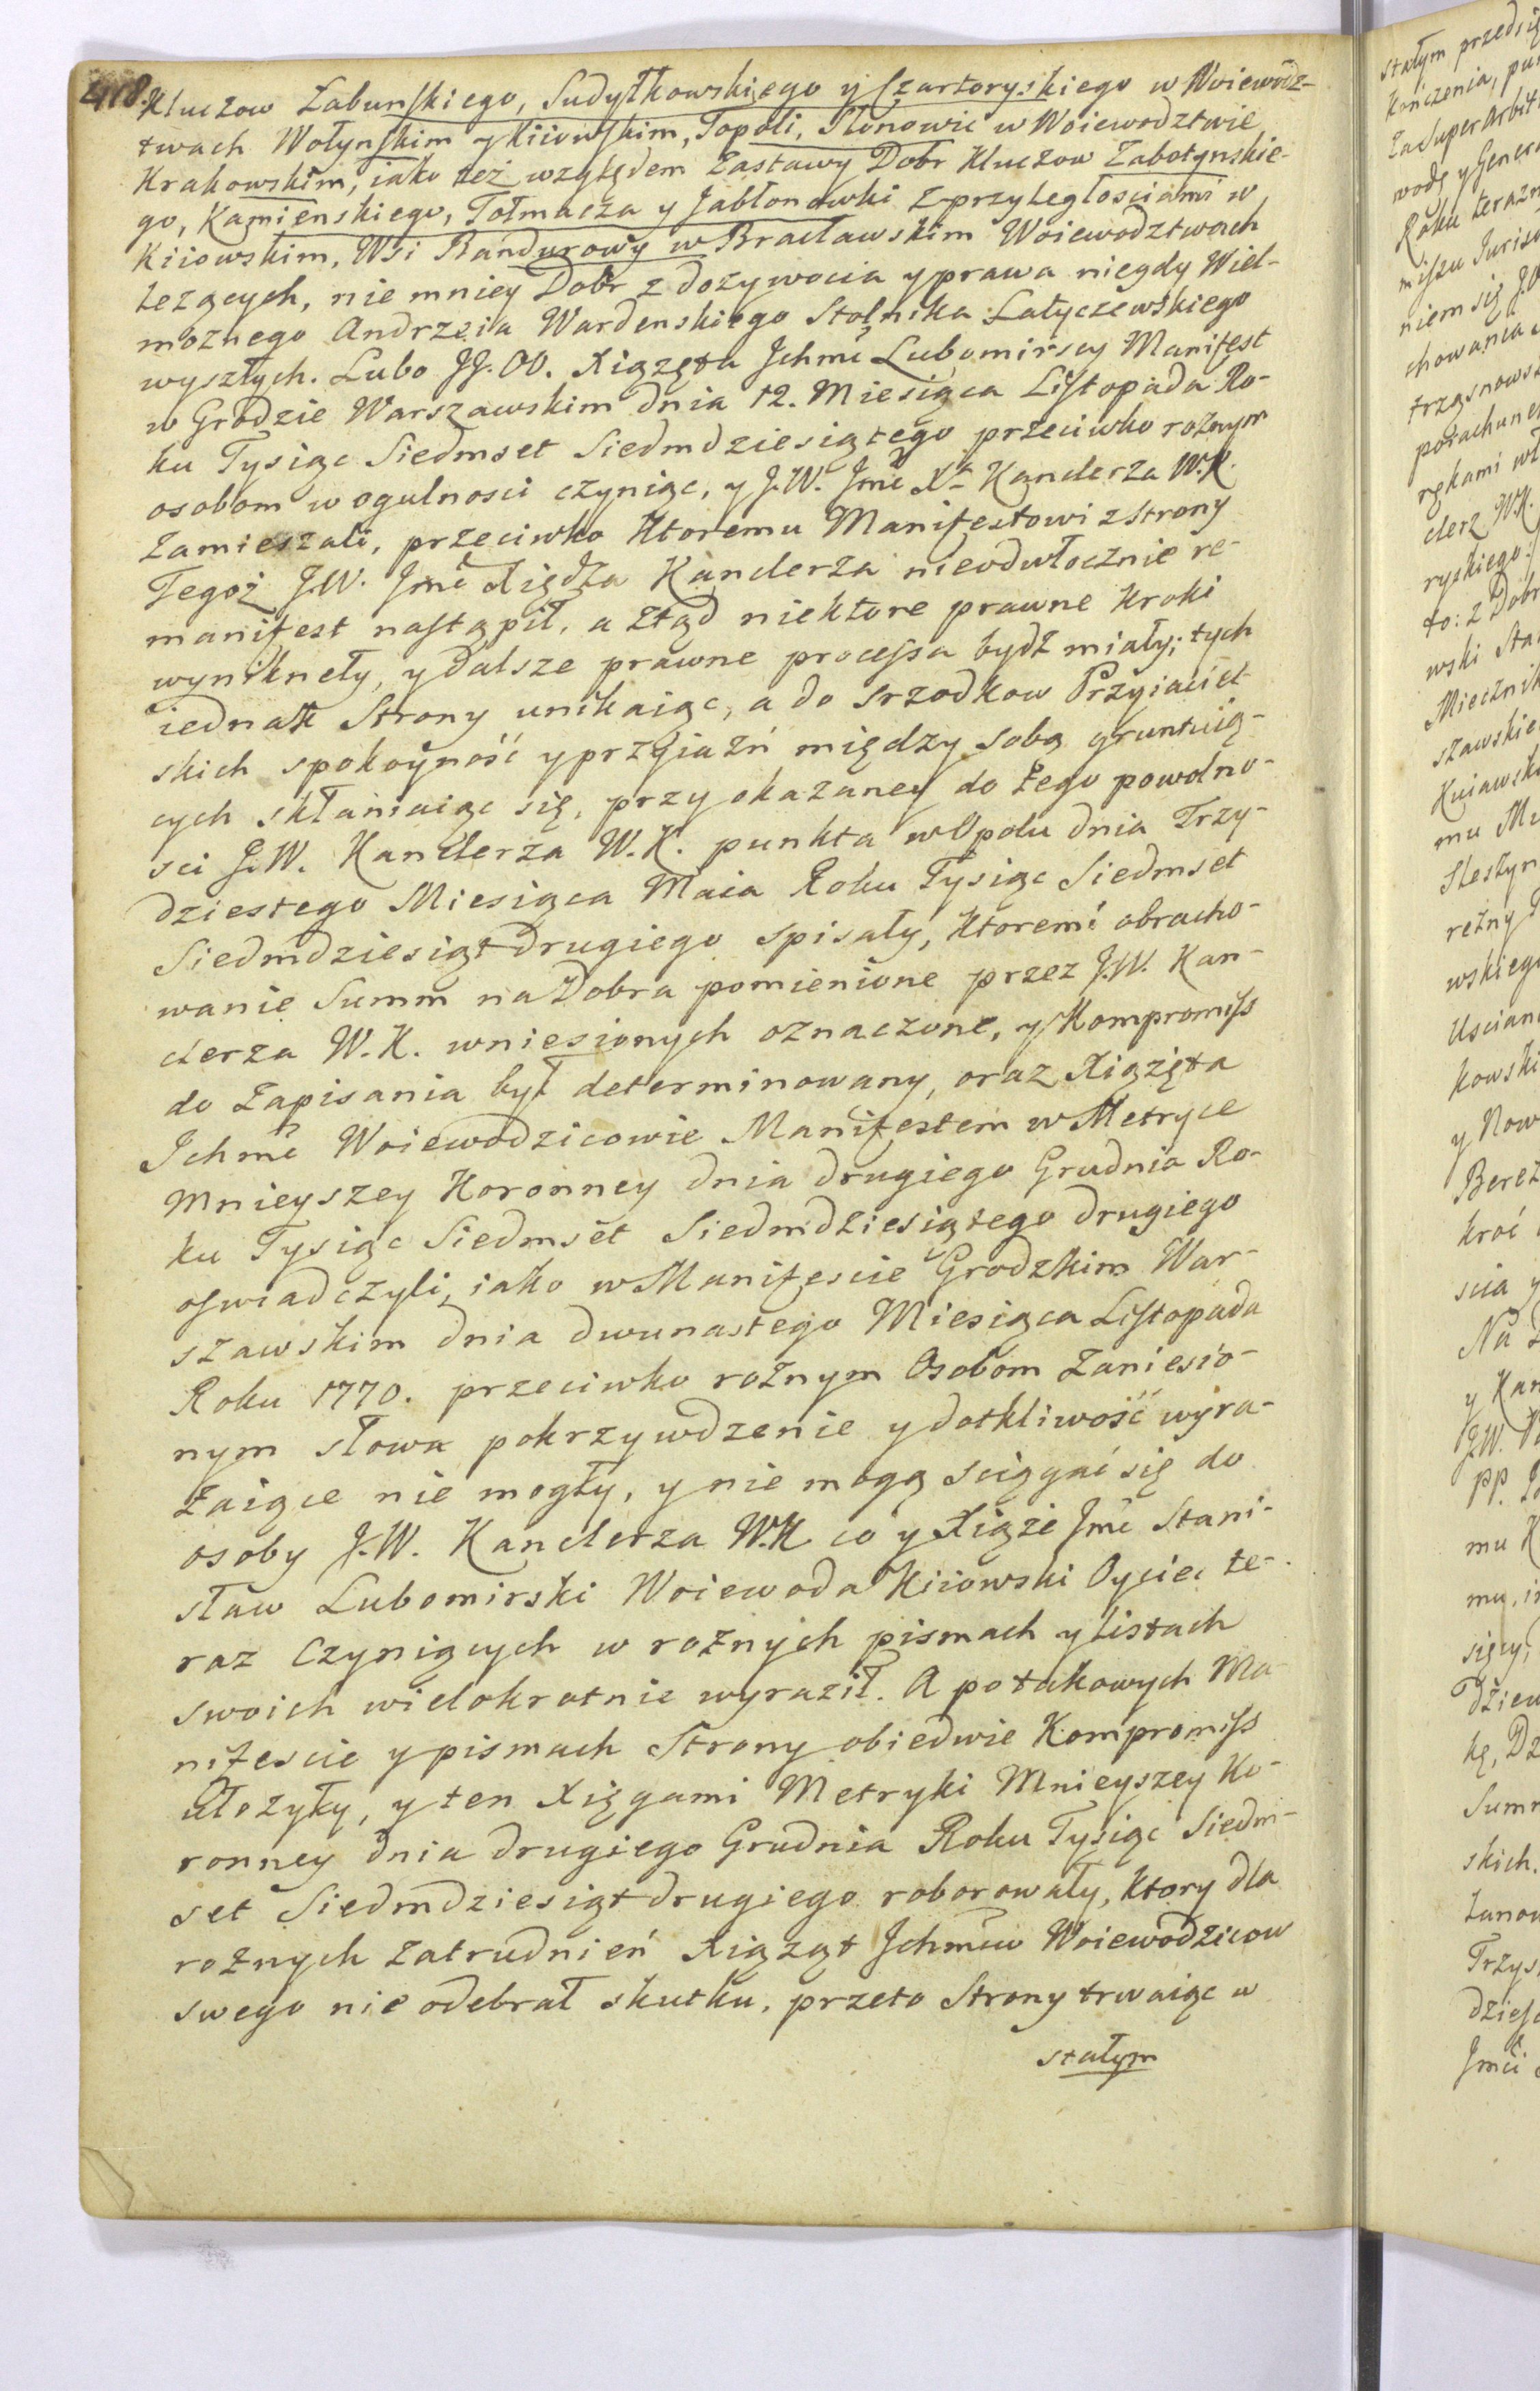 418.
Kluczow Łabunskiego, Sudyłkowskiego y Czartoryskiego w Woiewodz-
twach Wołynskim y Kiiowskim, Topoli, Słonowic w Woiewodztwie
Krakowskim, iako też względem Zastawy Dobr Kluczow Zabotynskie-
go, Kamienskiego, Tołmacza y Jabłonowki z przyległosciami w
Kiiowskim, Wsi Bandurowy w Bracławskim Woiewodztwach
leżących, nie mniey Dobr z dozywocia y prawa niegdy Wiel-
moznego Andrzeia Wardenskiego Stolnika Latyczewskiego
wyszłych. Lubo JJ. OO. Xiązęta Jchmć Lubomirscy Manifest
w Grodzie Warszawskim dnia 12. Miesiąca Listopada Ro-
ku Tysiąc Siedmset Siedmdziesiątego przeciwko roznym
osobom w ogulnosci czyniąc, y J.W. Jmć Xa Kanclerza W.K.
zamieszali, przeciwko ktoremu Manifestowi z strony
Tegoż J.W. Jmć Xiędza Kanclerza nieodwłocznie re-
manifest nastąpił, a ztąd niektore prawne kroki
wyniknęły, y dalsze prawne processa bydź miały; tych
iednak Strony unikaiąc, a do srzodkow Przyiaciel-
skich spokoyność y przyiaźń między sobą gruntuią-
cych skłaniaiąc się, przy okazaney do tego powolno-
sci J.W. Kanclerza W.K. punkta w Opolu dnia Trzy-
dziestego Miesiąca Maia Roku Tysiąc Siedmset
Siedmdziesiąt drugiego spisały, ktoremi obracho-
wanie Summ na Dobra pomienione przez J.W. Kan-
clerza W.K. wniesionych oznaczone, y Kompromiss
do zapisania był determinowany, oraz Xiązęta
Jchmć Woiewodzicowie Manifestem w Metryce
Mnieyszey Koronney dnia drugiego Grudnia Ro-
ku Tysiąc Siedmset Siedmdziesiątego drugiego
oswiadczyli, iako w Manifescie Grodzkim War-
szawskim dnia dwunastego Miesiąca Listopada
Roku 1770. przeciwko rożnym Osobom zaniesio-
nym słowa pokrzywdzenie y dotkliwość wyra-
żaiące nie mogły, y nie mogą sciągać się do
osoby J.W. Kanclerza W.K. co y Xiąże Jmć Stani-
sław Lubomirski Woiewoda Kiiowski Oyciec te-
raz czyniących w rożnych pismach y listach
swoich wielokrotnie wyraził. A po takowych Ma-
nifescie y pismach Strony obiedwie Kompromiss
ułożyły, y ten Xięgami Metryki Mnieyszey Ko-
ronney dnia drugiego Grudnia Roku Tysiąc Siedm-
set Siedmdziesiąt drugiego roborowały, ktory dla
rożnych zatrudnień Xiąząt Jchmciow Woiewodzicow
swego nie odebrał skutku, przeto Strony trwaiąc w
stałym
stałym przedsię
kończenia, pu
Za Super Arbit
wodę y Gener
Roku teraz
niem się J.O
chowania
porachune
rękami wł
clerz W.K.
ryskiego
to: z Dobr
wski Sta
Miecznik
szawskie
Kuiawsk
wskiego
kowski
y Now
Berez
kroć
scia y
Na
y Kan
J.W.
PP.
mu
mu, i
Dzień
Summ
skich.
Trzys
dzies
Jmći